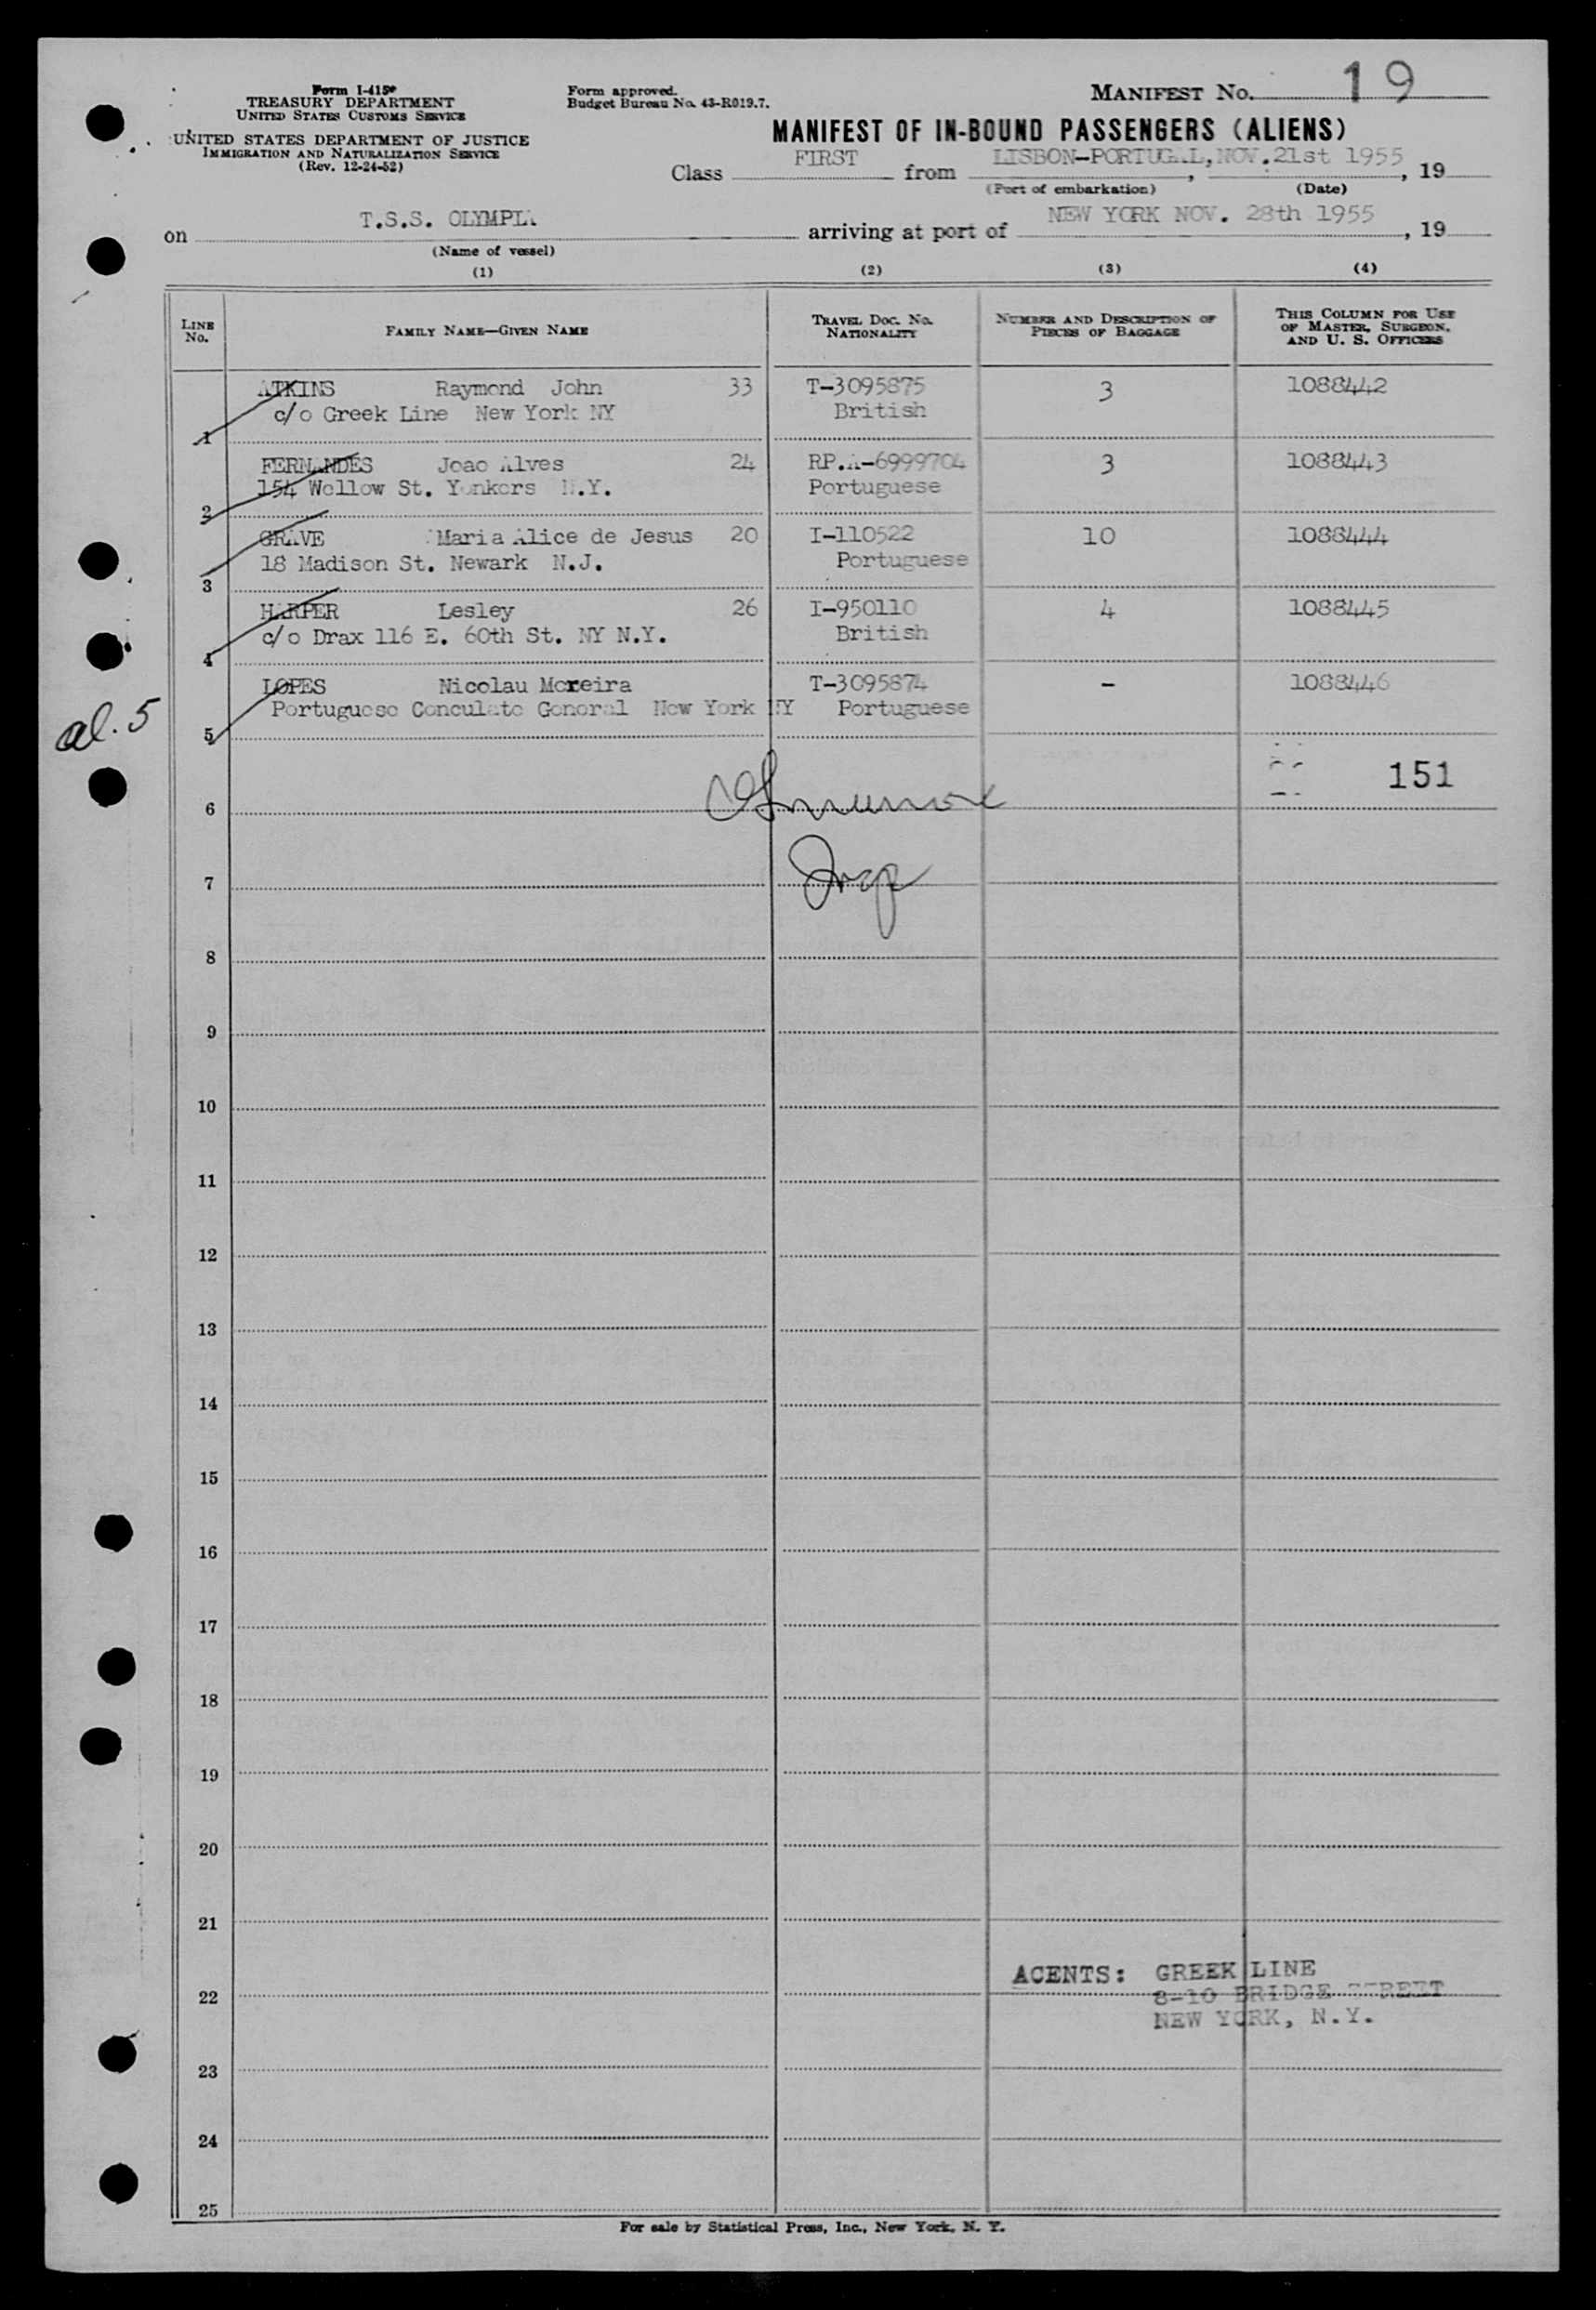 Form I-415
TREASURY DEPARTMENT
UNITED STATES CUSTOMS SERVICE
UNITED STATES DEPARTMENT OF JUSTICE
IMMIGRATION AND NATURALIZATION SERVICE
(Rev. 12-24-52)
Form approved.
Budget Bureau No. 43-R019.7.
MANIFEST No. 19
MANIFEST OF IN-BOUND PASSENGERS (ALIENS)
Class FIRST from LISBON-PORTUGAL, NOV. 21st 1955, 19
(Port of embarkation) (Date)
on T.S.S. OLYMPIA arriving at port of NEW YORK NOV. 28th 1955, 19
(Name of vessel)
(1) (2) (3) (4)
LINE No. FAMILY NAME—GIVEN NAME TRAVEL DOC. No. NATIONALITY NUMBER AND DESCRIPTION OF PIECES OF BAGGAGE THIS COLUMN FOR USE OF MASTER, SURGEON, AND U. S. OFFICERS
ATKINS Raymond John 33 T-3095875 3 1088442
c/o Greek Line New York NY British
1
FERNANDES Joao Alves 24 RP.A-6999704 3 1088443
154 Wollow St. Yonkers N.Y. Portuguese
2
GRAVE Maria Alice de Jesus 20 I-110522 10 1088444
18 Madison St. Newark N.J. Portuguese
3
HARPER Lesley 26 I-950110 4 1088445
c/o Drax 116 E. 60th St. NY N.Y. British
4
LOPES Nicolau Moreira T-3095874 - 1088446
Portuguese Conculate General New York NY Portuguese
5
al. 5
151
6
7
8
9
10
11
12
13
14
15
16
17
18
19
20
21
AGENTS: GREEK LINE
22 8-10 BRIDGE STREET
NEW YORK, N.Y.
23
24
25
For sale by Statistical Press, Inc., New York, N. Y.